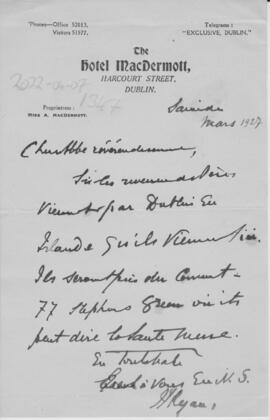 'Phones—Office 52813.
Visitors 51577.
Telegrams:
"EXCLUSIVE, DUBLIN."
The
Hotel MacDermott,
HARCOURT STREET,
DUBLIN.
2022-04-07
1347
Proprietress:
MISS A. MACDERMOTT.
Samedi
Mars 1927
Cher Abbé
Si les
viennent par Dublin En
Irlande qu'ils viennent ici.
Ils seront près du Couvent—
77 Stephens Green où ils
peut dire la Sainte Messe.
En
à vous En N. S.
Ryan,